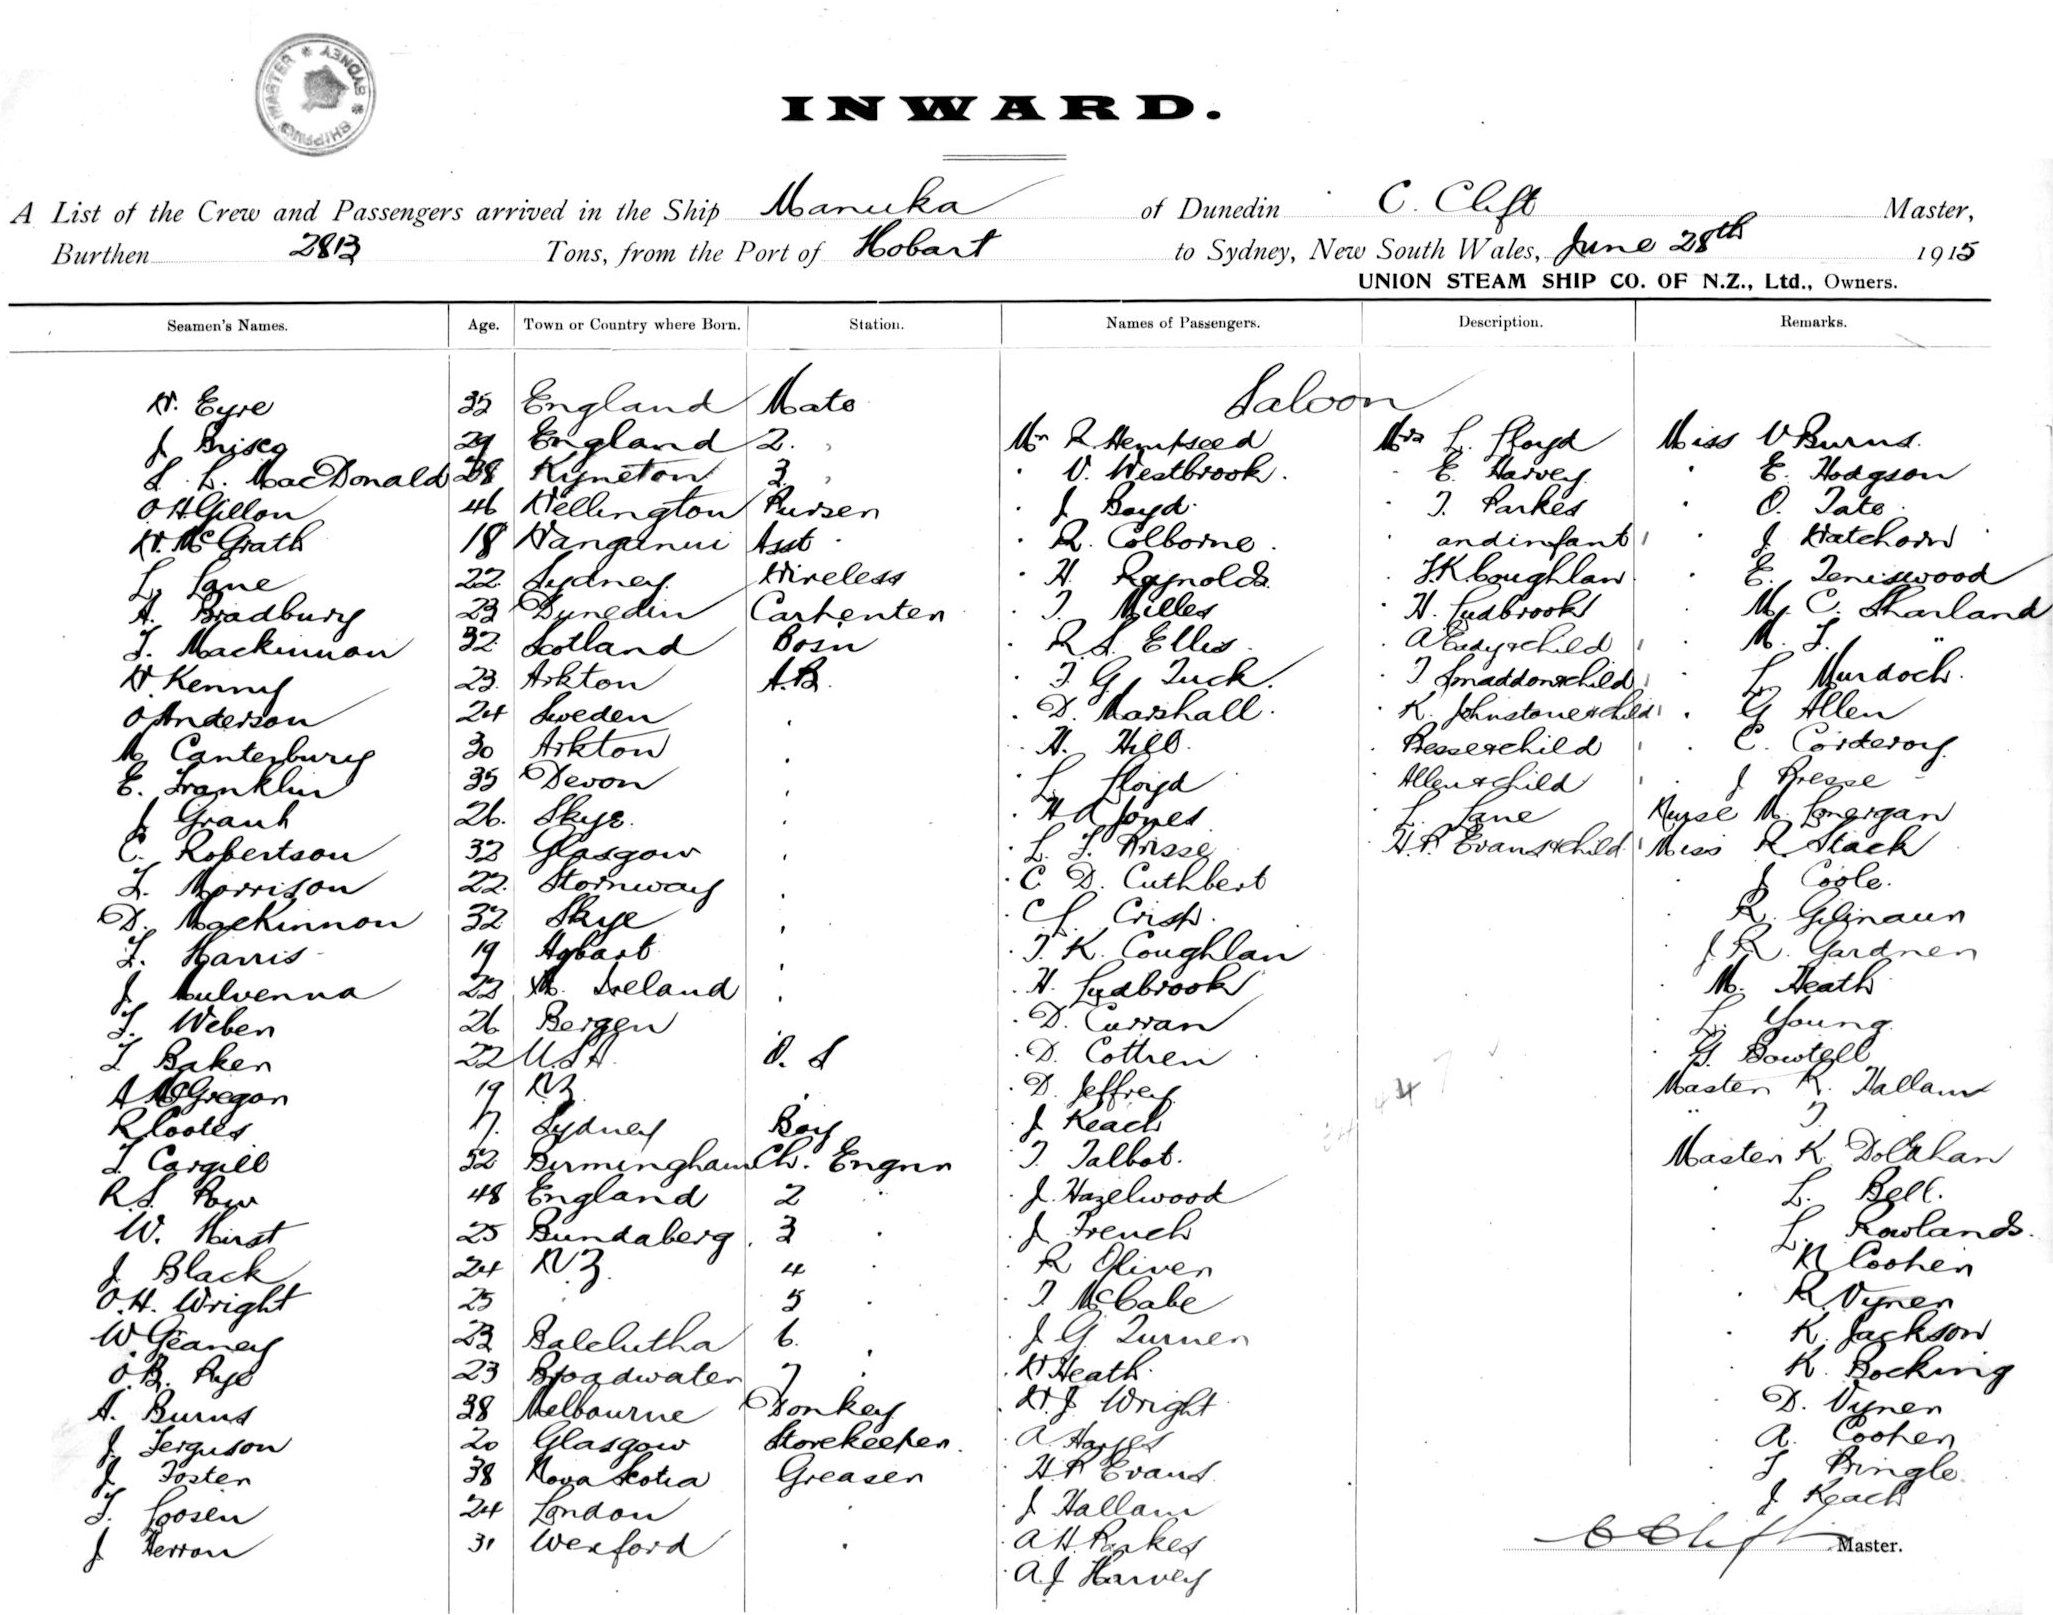 SHIPPING MASTER * SYDNEY *
INWARD.
A List of the Crew and Passengers arrived in the Ship Manuka of Dunedin C. Clift Master,
Burthen 2813 Tons, from the Port of Hobart to Sydney, New South Wales, June 28th 1915
UNION STEAM SHIP CO. OF N.Z., Ltd., Owners.
Seamen's Names. Age. Town or Country where Born. Station. Names of Passengers. Description. Remarks.
Saloon
W. Eyre 35 England Mate
J Brisco 29 England 2. Mr R. Hempseed Mrs L. Lloyd Miss V Burns.
L. MacDonald 28 Kyneton 3 V. Westbrook. E. Harvey E. Hodgson
O.H Gillon 46 Wellington Purser J Boyd T. Parkes O. Tate
W. McGrath 18 Wanganui Asst R. Colborne and infant J Hatchorn
L. Lane 22 Sydney Wireless H. Reynolds T.K Coughlan E. Teniswood
A. Bradbury 23 Dunedin Carpenter T. Milles H. Ludbrook M. C. Sharland
T. Mackinnon 32 Scotland Bosn R. S. Ellis A Eady & child M. J. "
W. Kenny 23 Arkton A.B. T. G. Tuck. T Smaddon & child L. Murdoch.
O Anderson 24 Sweden D. Marshall. K. Johnstone & child G Allen
M Canterbury 30 Arkton H. Hill. Presse & child C. Corderoy
E. Franklin 35 Devon L. Lloyd Allen & child J Presse
J Grant 26. Skye. H A Jones L. Lane Nurse M. Lonergan
C. Robertson 32 Glasgow L. J. Presse H.P. Evans & child Miss R. Stack
J. Morrison 22 Stornway C. D. Cuthbert J Coole.
D. MacKinnon 32 Skye C L. Crisp. R.
J. Harris 19 Hobart T. K. Coughlan J. R. Gardner
J Mulvenna 23 N. Ireland H. Ludbrook M. Heath
J. Weber 26 Bergen D. Curran L. Young
T Baker 22 U.S.A. O. S D. Cottren G. Bowtell
A McGregor 19 N.Z D. Jeffrey Master R. Hallam
R Cootes Sydney Boy J Keach " T.
T. Cargill 52 Birmingham Ch. Engnr T. Talbot. Master K.
R.S. Pow 48 England 2 J. Hazelwood L. Bell.
W. Hirst 25 Bundaberg 3 J French L. Rowlands.
J Black 24 N.Z. 4 R Oliver N Coohen
O.H. Wright 25 5 T McCabe R. Vyner
W Geaney 23 Balclutha 6. J G Turner K. Jackson
O.B. Pye 23 Broadwater 7 W Heath K. Bocking
A. Burns 38 Melbourne Donkey W. J Wright D. Vyner
J. Ferguson 20 Glasgow Storekeeper. A A. Coohen
J Foster 38 Nova Scotia Greaser H.P Evans J Pringle.
J. Loosen 24 London J Hallam J Keach
J Herron 31 Wexford A H. Parkes C Clift Master.
A J Harvey